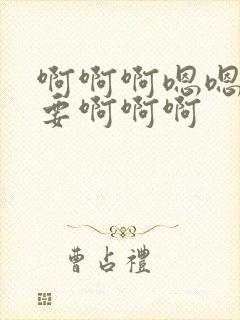 啊啊啊嗯嗯
要啊啊啊
曹占禮